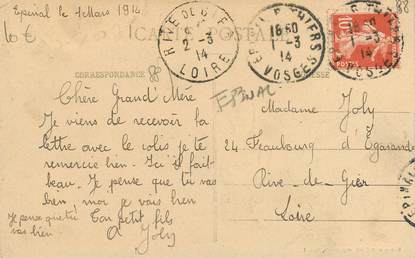 Epinal le 1 Mars 1914
10€
88
RIVE DE GIER
2 - 3
14
LOIRE
EPINAL THIERS
18 50
1 - 3
14
VOSGES
10
CARTE POSTALE
CORRESPONDANCE
ADRESSE
EPINAL
Chère Grand' Mère
Je viens de recevoir ta
lettre avec le colis je te
remercie bien. Ici il fait
beau. Je pense que tu vas
bien, moi je vais bien
Je pense que tu
vas bien
Ton petit fils
A Joly
Madame Joly
24 Feaubourg d'Egarande
Rive-de-Gier
Loire